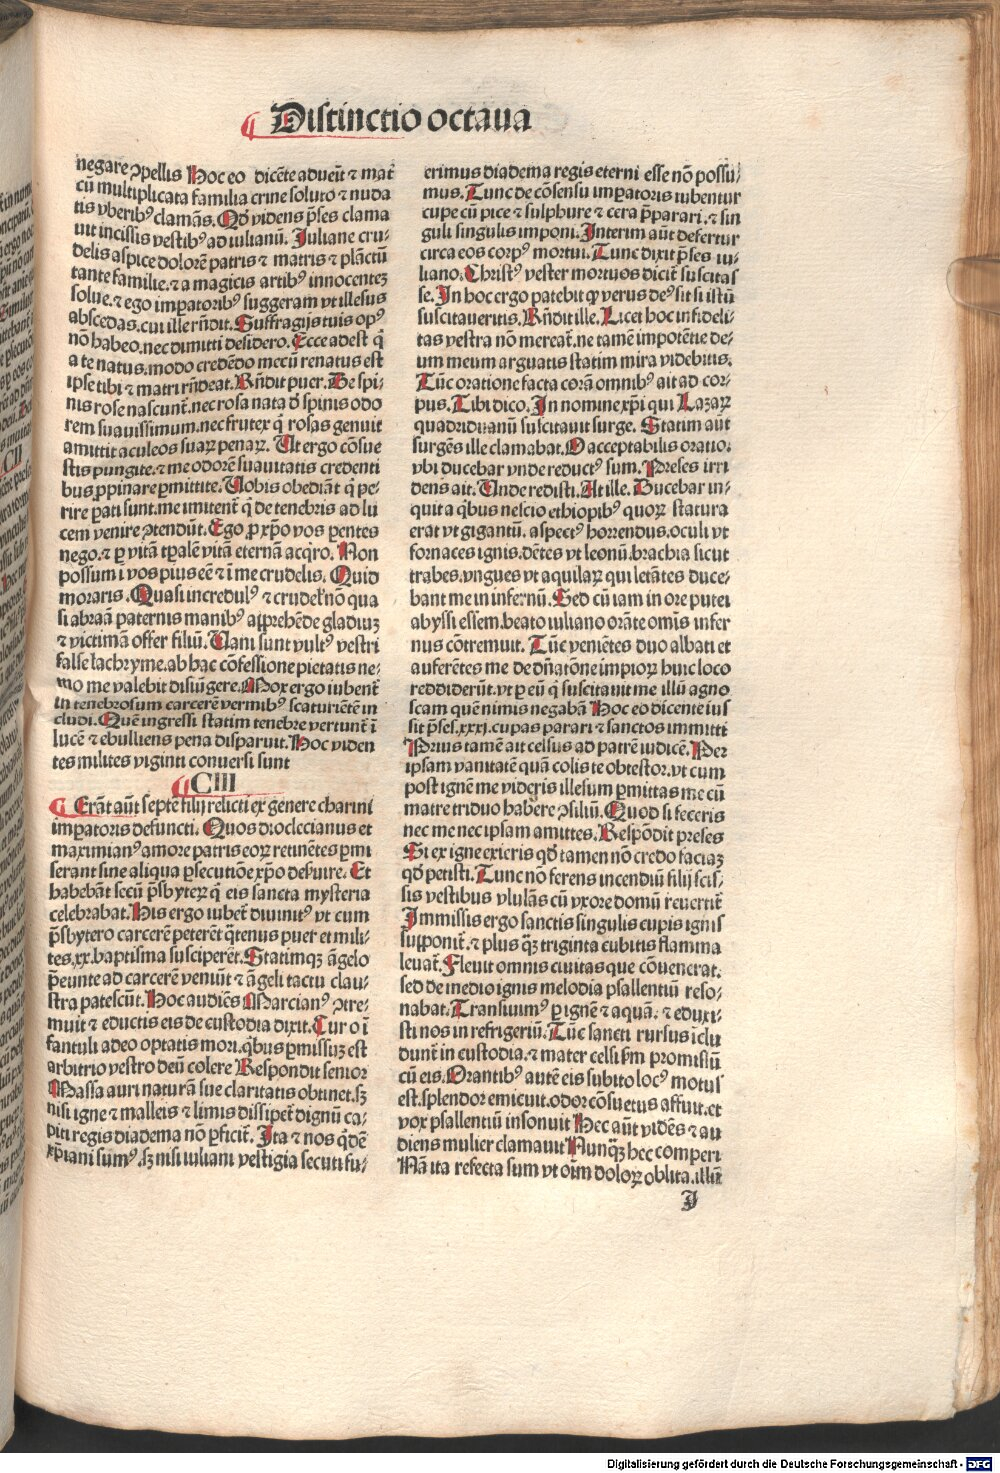 Distinctio octaua
negare ɔpellis Hoc eo dicēte adueīt ⁊ mat̄
cū multiplicata familia crine soluto ⁊ nuda
tis vberibꝰ clamās. Qđ videns p̄ses clama
uit incissis vestibꝰ ad iulianū. Juliane cru⸗
delis aspice dolorē patris ⁊ matris ⁊ plāctū
tante familie.⁊ a magicis artibꝰ innocenteʒ
solue.⁊ ego imꝑatoribꝰ suggeram vt illesus
abscedas.cui ille rn̄dit. Suffragijs tuis opꝰ
nō habeo.nec dimitti desidero. Ecce adest q̄
a te natus.modo credēdo mecū renatus est
ipse tibi ⁊ matri rn̄deat. Rn̄dit puer. De spi⸗
nis rose nascunt̄.nec rosa nata đ spinis odo
rem suauissimum.nec frutex q̄ rosas genuit
amittit aculeos suaꝝ penaꝝ. Ut ergo cōsue
stis pungite.⁊ me odorē suauitatis credenti
bus ꝓpinare ꝑmittite. Uobis obediāt q̄ pe⸗
rire ꝑati sunt.me imitent̄ q̄ de tenebris ad lu
cem venire ɔtendūt. Ego ꝓ xp̄o vos ꝑentes
nego.⁊ ꝑ vitā tꝑalē vitā eternā acq̄ro. Non
possum ī vos pius eē ⁊ ī me crudelis. Quid
moraris. Quasi incredulꝰ ⁊ crudel̄ nō qua
si abraā paternis manibꝰ apprehēde gladiuʒ
⁊ victimā offer filiū. Uani sunt vultꝰ vestri
false lachryme.ab hac cōfessione pietatis ne⸗
mo me valebit disiūgere. Mox ergo iubent̄
in tenebrosum carcerē vermibꝰ scaturiētē in
cludi. Quē ingressi statim tenebre vertunt̄ ī
lucē ⁊ ebulliens pena disparuit. Hoc viden
tes milites viginti conuersi sunt
CIII
Erāt aūt septē filij relicti ex genere charini
imꝑatoris defuncti. Quos dioclecianus et
maximianꝰ amore patris eoꝝ retinētes ꝑmi
serant sine aliqua ꝑsecutiōe xp̄o deẜuire. Et
habebāt secū p̄sbyteꝝ q̄ eis sancta mysteria
celebrabat. His ergo iubet̄ diuinitꝰ vt cum
p̄sbytero carcerē peterēt q̄tenus puer et mili⸗
tes.xx.baptisma susciperēt. Statimqʒ āgelo
p̄eunte ad carcerē veniūt ⁊ āgeli tactu clau⸗
stra patescūt. Hoc audiēs Marcianꝰ ɔtre⸗
muit ⁊ eductis eis de custodia dixit. Cur o ī
fantuli adeo optatis mori.q̄bus ꝑmissuʒ est
arbitrio vestro deū colere Respondit senior
Massa auri naturā sue claritatis obtinet.sʒ
nisi igne ⁊ malleis ⁊ limis dissipet̄ dignū ca⸗
piti regis diadema nō ꝑficit̄. Ita ⁊ nos q̄dē
xp̄iani sumꝰ.sʒ nisi iuliani vestigia secuti fu⸗
erimus diadema regis eterni esse nō possu⸗
mus. Tunc de cōsensu imꝑatoris iubentur
cupe cū pice ⁊ sulphure ⁊ cera p̄parari.⁊ sin
guli singulis imponi. Interim aūt defertur
circa eos corpꝰ mortui. Tunc dixit p̄ses iu⸗
liano. Christꝰ vester mortuos dicit̄ suscitas
se. In hoc ergo patebit ꝙ verus deꝰ sit si istū
suscitaueritis. Rn̄dit ille. Licet hoc infideli⸗
tas vestra nō mereat̄.ne tamē impotētie de⸗
um meum arguatis statim mira videbitis.
Tūc oratione facta corā omnibꝰ ait ad cor⸗
pus. Tibi dico. In nomine xp̄i qui Lazaꝝ
quadriduanū suscitauit surge. Statim aūt
surgēs ille clamabat. O acceptabilis oratio.
vbi ducebar vnde reductꝰ sum. Preses irri
dens ait. Unde redisti. Ait ille. Ducebar in⸗
quit a q̄bus nescio ethiopibꝰ quoꝝ statura
erat vt gigantū. aspectꝰ horrendus.oculi vt
fornaces ignis.dētes vt leonū.brachia sicut
trabes.vngues vt aquilaꝝ qui letātes duce⸗
bant me in infernū. Sed cū iam in ore putei
abyssi essem.beato iuliano orāte omīs infer
nus cōtremuit. Tūc veniētes duo albati et
auferētes me de dn̄atōne impioꝝ huic loco
reddiderūt.vt ꝑ eū q̄ suscitauit me illū agno
scam quē nimis negabā Hoc eo dicente ius
sit p̄ses.xxxi.cupas parari ⁊ sanctos immitti
Prius tamē ait celsus ad patrē iudicē. Per
ipsam vanitatē quā colis te obtestor.vt cum
post ignē me videris illesum ꝑmittas me cū
matre triduo habere ɔsiliū. Quod si feceris
nec me nec ipsam amittes. Respōdit preses
Si ex igne exieris qđ tamen nō credo faciaʒ
qđ petisti. Tunc nō ferens incendiū filij scis⸗
sis vestibus vlulās cū vxore domū reuertit̄
Immissis ergo sanctis singulis cupis ignis
supponit̄.⁊ plus qʒ triginta cubitis flamma
leuat̄. Fleuit omnis ciuitas que cōuenerat.
sed de medio ignis melodia psallentiū reso⸗
nabat. Transiuimꝰ ꝑ ignē ⁊ aquā.⁊ eduxi⸗
sti nos in refrigeriū. Tūc sancti rursus īclu
dunt̄ in custodia.⁊ mater celsi ẜm promissū
cū eis. Orantibꝰ autē eis subito locꝰ motus
est.splendor emicuit.odor cōsuetus affuit.et
vox psallentiū insonuit Hec aūt vidēs ⁊ au
diens mulier clamauit Nunqʒ hec comperi
Nā ita refecta sum vt oīm doloꝝ oblita.illū
J
Digitalisierung gefördert durch die Deutsche Forschungsgemeinschaft - DFG